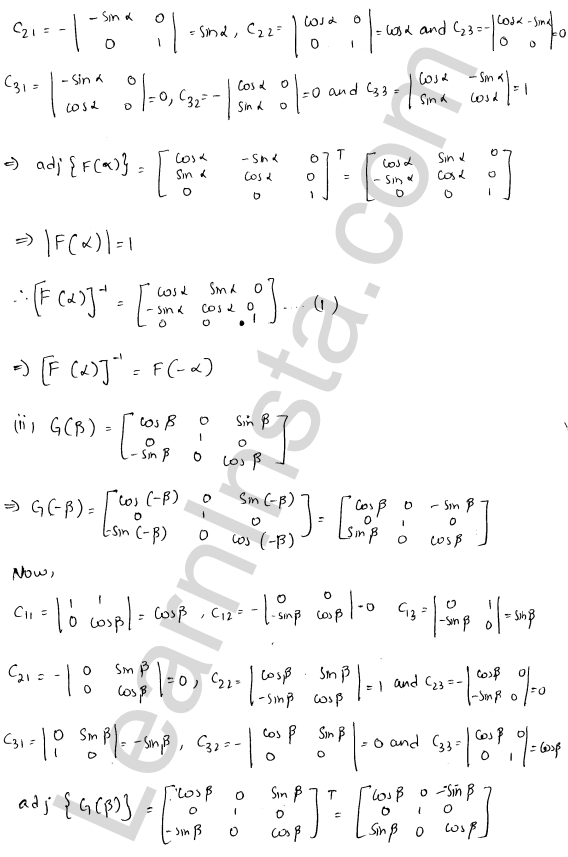 C₂₁ = - | -sinα 0 ; 0 1 | = sinα, C₂₂ = | cosα 0 ; 0 1 | = cosα and C₂₃ = - | cosα -sinα ; 0 0 | = 0
C₃₁ = | -sinα 0 ; cosα 0 | = 0, C₃₂ = - | cosα 0 ; sinα 0 | = 0 and C₃₃ = | cosα -sinα ; sinα cosα | = 1
⇒ adj {F(α)} = [ cosα -sinα 0 ; sinα cosα 0 ; 0 0 1 ]ᵀ = [ cosα sinα 0 ; -sinα cosα 0 ; 0 0 1 ]
⇒ |F(α)| = 1
∴ [F(α)]⁻¹ = [ cosα sinα 0 ; -sinα cosα 0 ; 0 0 1 ] .... (1)
⇒ [F(α)]⁻¹ = F(-α)
(ii) G(β) = [ cosβ 0 sinβ ; 0 1 0 ; -sinβ 0 cosβ ]
⇒ G(-β) = [ cos(-β) 0 sin(-β) ; 0 1 0 ; -sin(-β) 0 cos(-β) ] = [ cosβ 0 -sinβ ; 0 1 0 ; sinβ 0 cosβ ]
Now,
C₁₁ = | 1 1 ; 0 cosβ | = cosβ, C₁₂ = - | 0 0 ; -sinβ cosβ | = 0 C₁₃ = | 0 1 ; -sinβ 0 | = sinβ
C₂₁ = - | 0 sinβ ; 0 cosβ | = 0, C₂₂ = | cosβ sinβ ; -sinβ cosβ | = 1 and C₂₃ = - | cosβ 0 ; -sinβ 0 | = 0
C₃₁ = | 0 sinβ ; 1 0 | = -sinβ, C₃₂ = - | cosβ sinβ ; 0 0 | = 0 and C₃₃ = | cosβ 0 ; 0 1 | = cosβ
adj {G(β)} = [ cosβ 0 sinβ ; 0 1 0 ; -sinβ 0 cosβ ]ᵀ = [ cosβ 0 -sinβ ; 0 1 0 ; sinβ 0 cosβ ]
LearnInsta.com